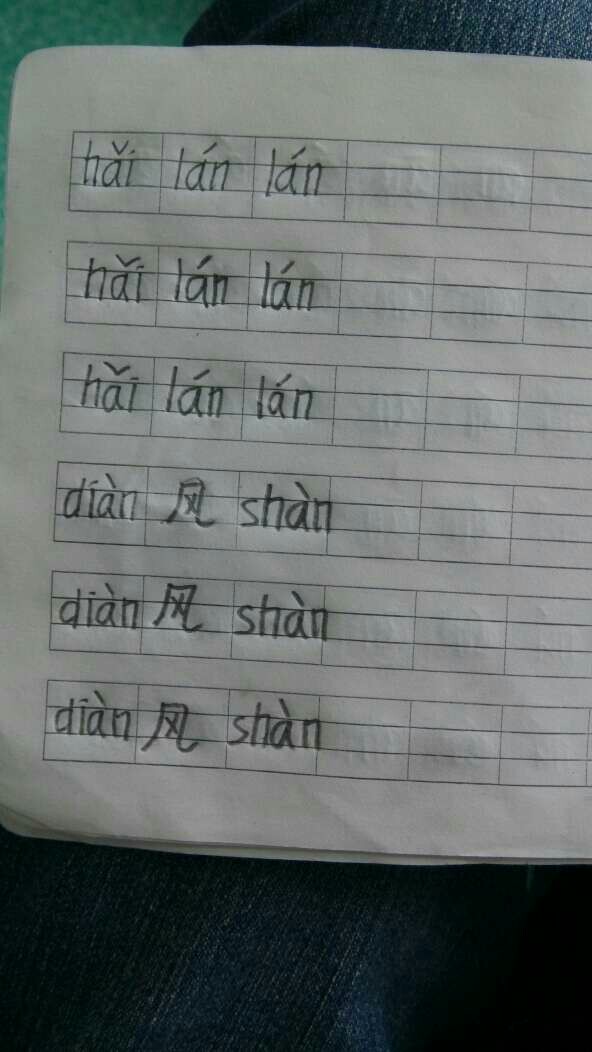 hǎi lán lán
hǎi lán lán
hǎi lán lán
diàn 风 shàn
diàn 风 shàn
diàn 风 shàn